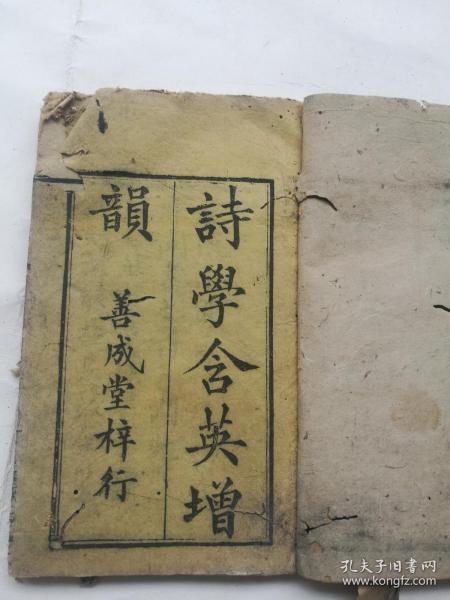 詩學含英增
韻
善成堂梓行
孔夫子旧书网
www.kongfz.com